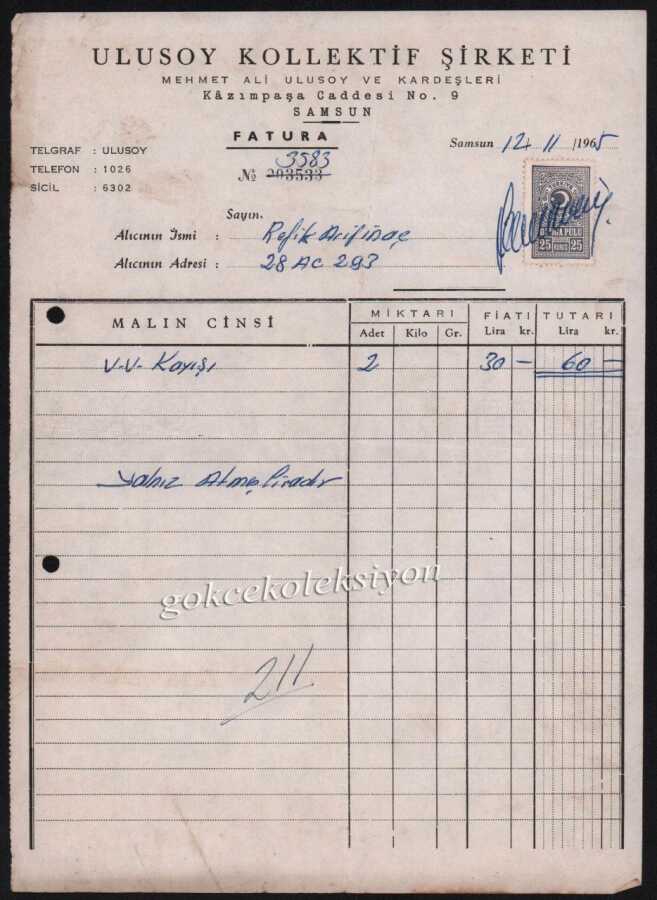 ULUSOY KOLLEKTİF ŞİRKETİ
MEHMET ALİ ULUSOY VE KARDEŞLERİ
Kâzımpaşa Caddesi No. 9
SAMSUN
FATURA
TELGRAF : ULUSOY
TELEFON : 1026
SİCİL : 6302
Samsun 12 11 /1965
3583
№ 203533
Sayın,
Alıcının İsmi : Refik Arifinaç
Alıcının Adresi : 28 AC 293
DAMGA PULU
25 KURUŞ 25
MALIN CİNSİ MİKTARI FİATI TUTARI
Adet Kilo Gr. Lira kr. Lira kr.
V-V- Kayışı 2 30 — 60 —
Yalnız Atmış liradır
gokcekoleksiyon
211